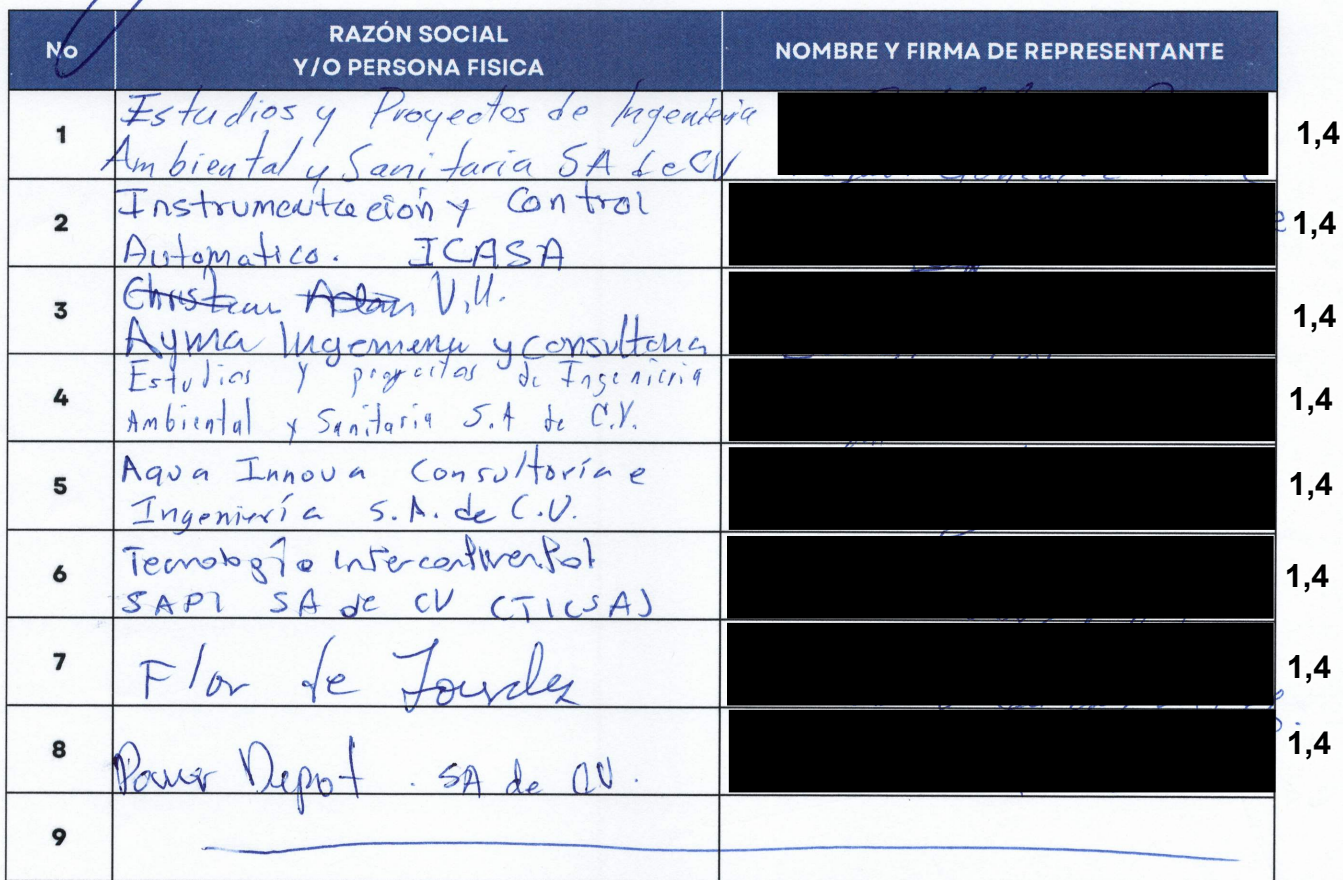 No
RAZÓN SOCIAL
Y/O PERSONA FISICA
NOMBRE Y FIRMA DE REPRESENTANTE
1
Estudios y Proyectos de Ingenieria
Ambiental y Sanitaria SA de CV
1,4
2
Instrumentación y Control
Automatico. ICASA
1,4
3
Christian Adan V.U.
Ayma Ingenieria y consultoria
1,4
4
Estudios y proyectos de Ingenieria
Ambiental y Sanitaria S.A de C.V.
1,4
5
Aqua Innova Consultoría e
Ingeniería S.A. de C.V.
1,4
6
Tecnología intercontinental
SAPI SA de CV (TICSA)
1,4
7
Flor de Lourdes
1,4
8
Power Depot . SA de CV.
1,4
9